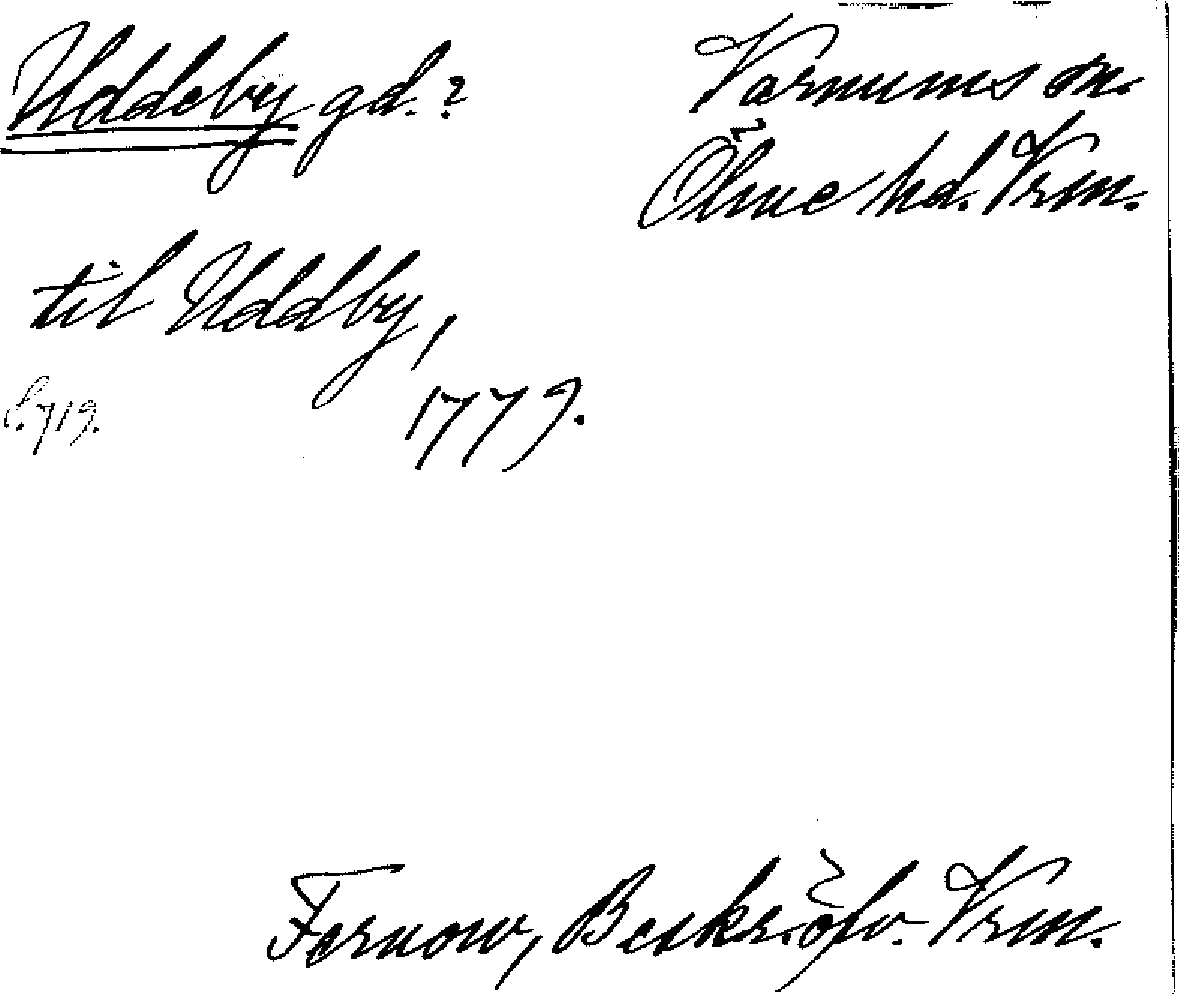 Uddeby gd.?
Varnums sn.
Ölme hd. Vrm.
til Uddby,
1779.
S. 719.
Fernow, Beskr. öfv. Vrm.